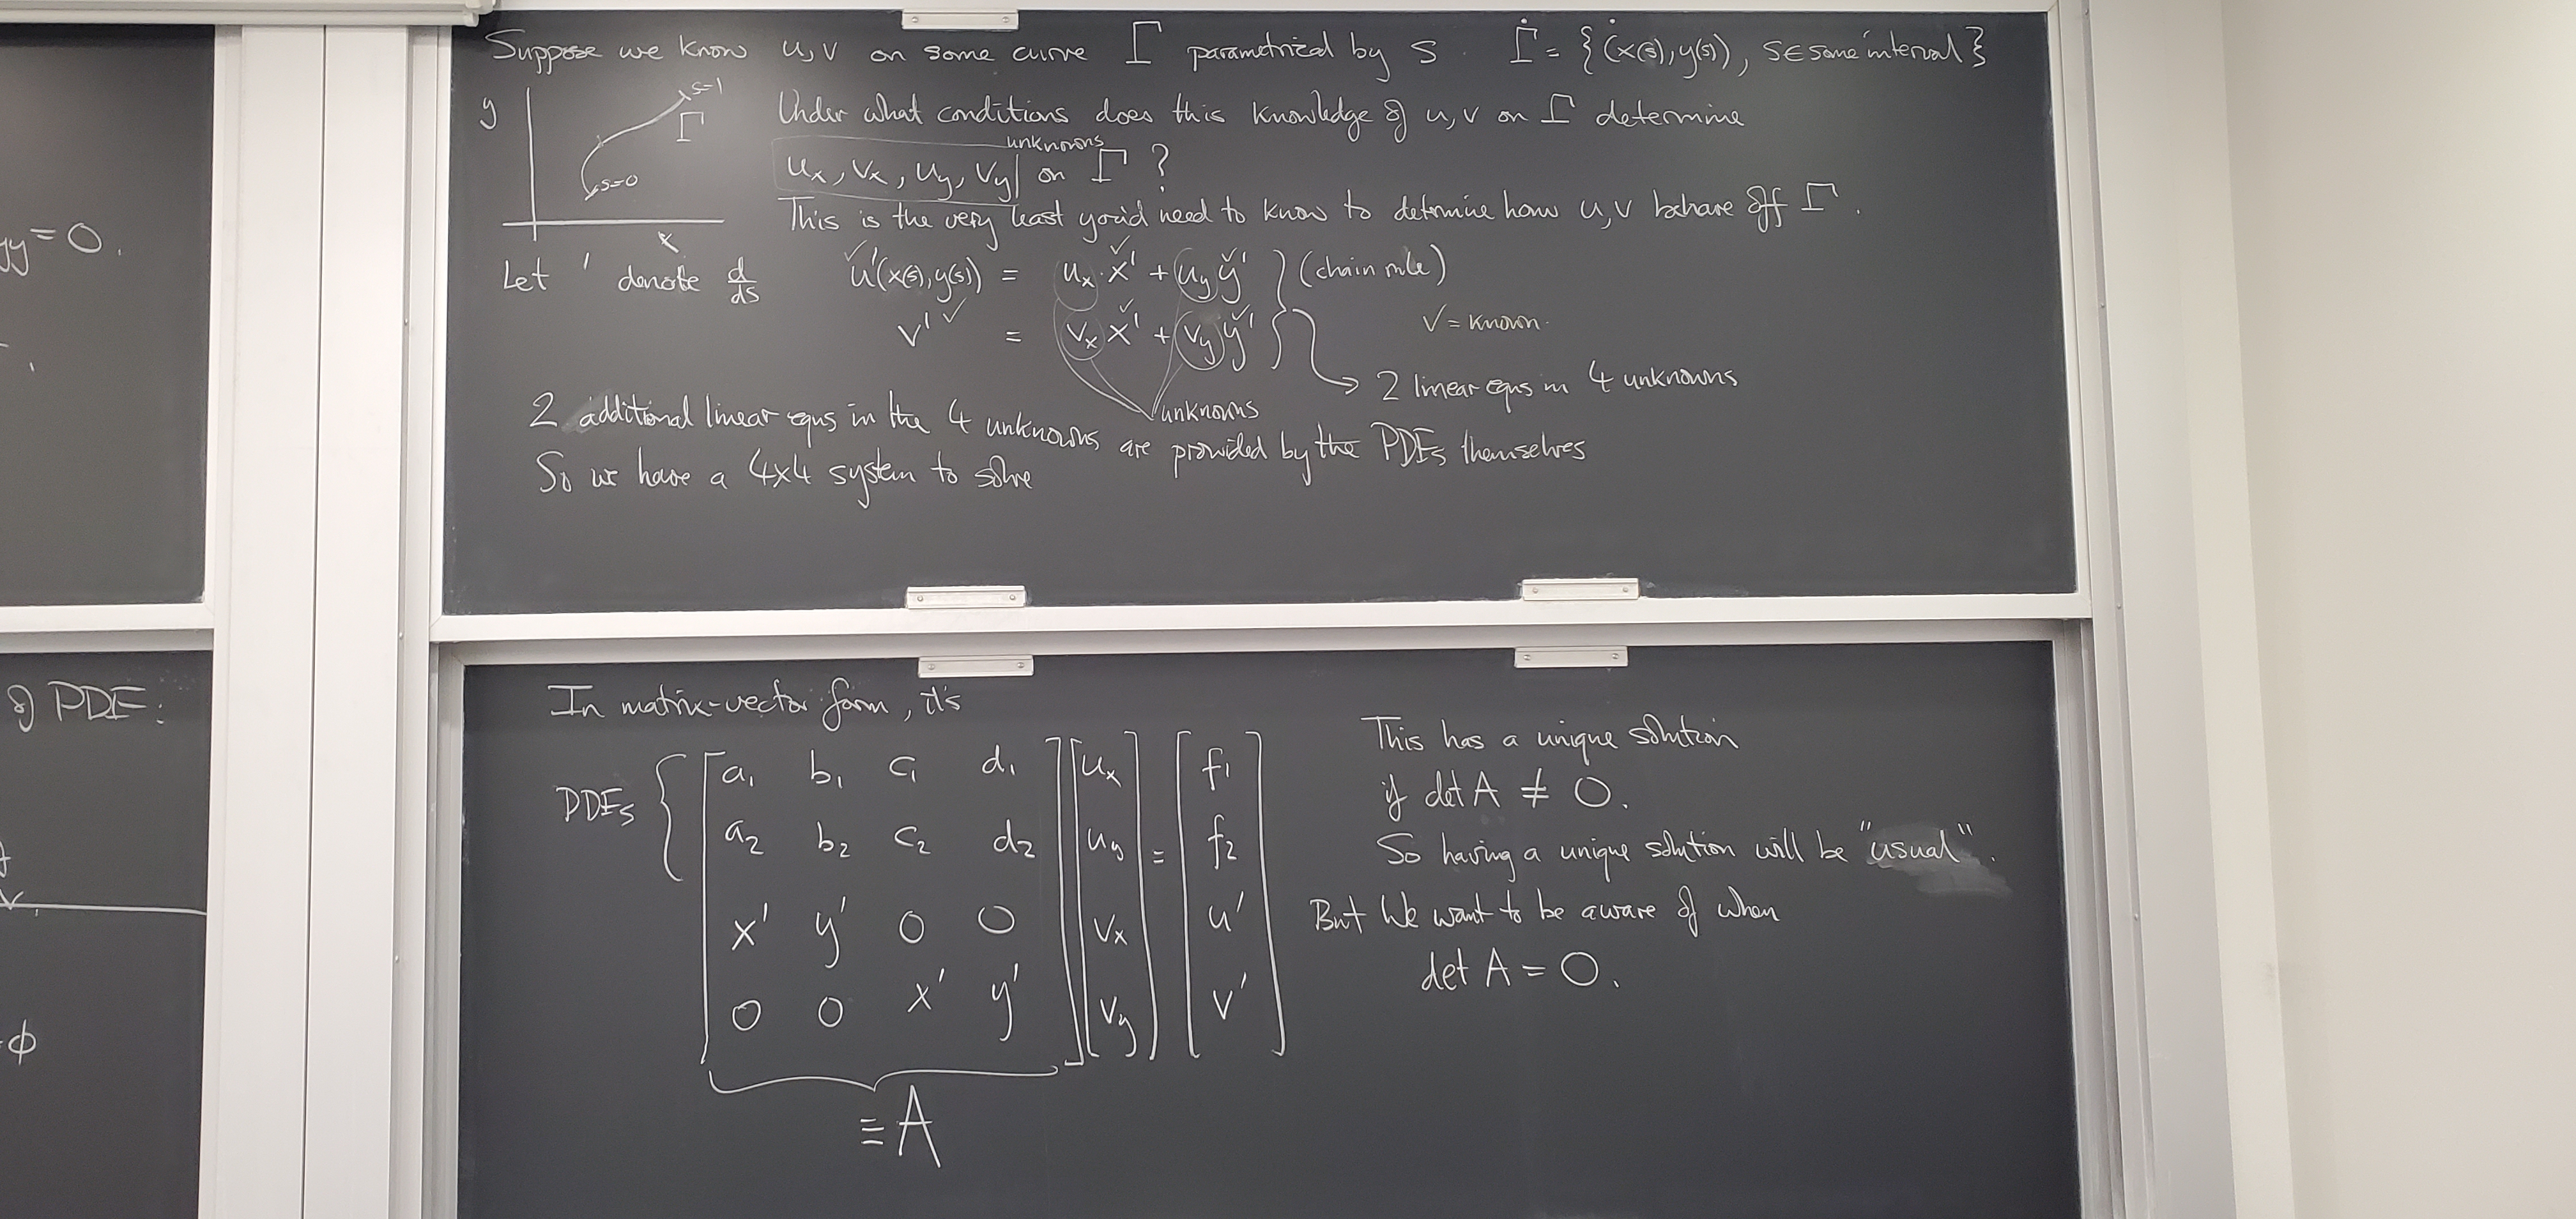 Suppose we know u,v on some curve Γ parametrized by s. Γ = {(x(s),y(s)), s∈some interval}
y
s=1
Γ
s=0
x
Under what conditions does this knowledge of u,v on Γ determine
unknowns
u_x, v_x, u_y, v_y on Γ ?
This is the very least you'd need to know to determine how u,v behave off Γ.
Let ' denote d/ds
✓ ✓ ✓
u'(x(s),y(s)) = u_x·x' + u_y y' } (chain rule)
✓ ✓ ✓
v' = v_x x' + v_y y'
✓ = known.
→ 2 linear eqns in 4 unknowns
unknowns
2 additional linear eqns in the 4 unknowns are provided by the PDEs themselves
So we have a 4x4 system to solve
yy = 0.
of PDE:
φ
In matrix-vector form, it's
PDEs { [ a₁ b₁ c₁ d₁ ] [ u_x ] [ f₁ ]
a₂ b₂ c₂ d₂ u_y = f₂
x' y' 0 0 v_x u'
0 0 x' y' v_y v'
≡ A
This has a unique solution
if det A ≠ 0.
So having a unique solution will be "usual".
But we want to be aware of when
det A = 0.